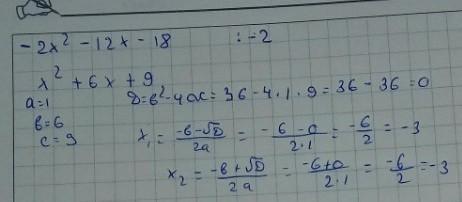 -2x² - 12x - 18 : -2
x² + 6x + 9
a=1 D=b²-4ac= 36 - 4·1·9 = 36 - 36 = 0
b=6
c=9 x₁ = (-b-√D)/2a = (-6-0)/2·1 = -6/2 = -3
x₂ = (-b+√D)/2a = (-6+0)/2·1 = -6/2 = -3